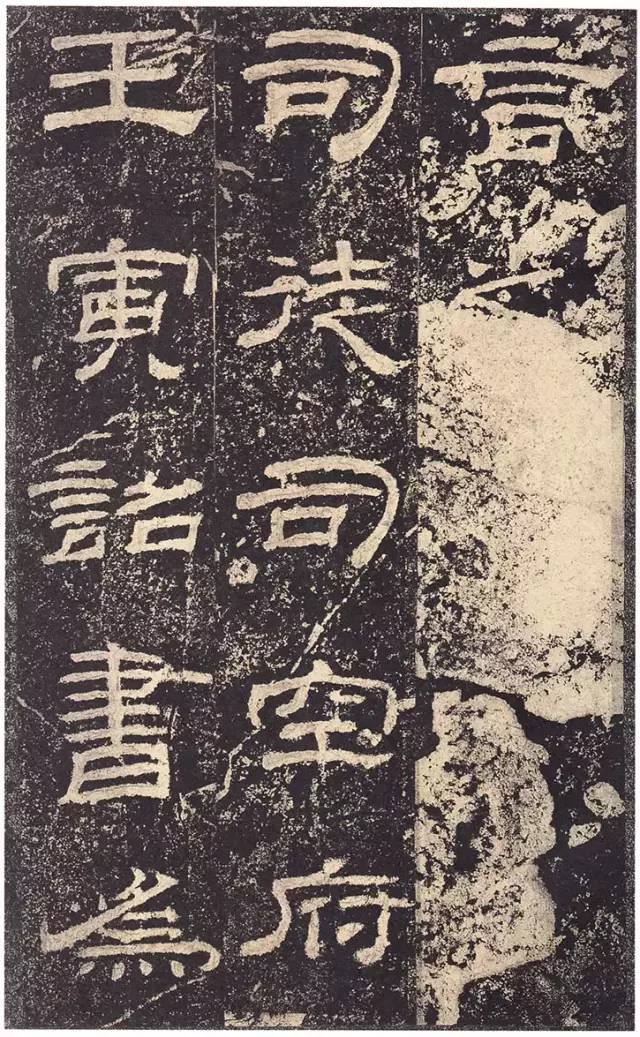 言之
司徒司空府
壬寅詔書為